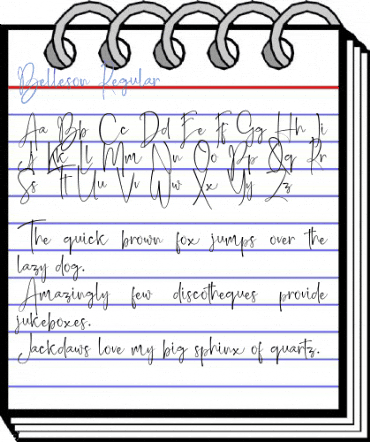 Belleson Regular
Aa Bb Cc Dd Ee Ff Gg Hh Ii
Jj Kk Ll Mm Nn Oo Pp Qq Rr
Ss Tt Uu Vv Ww Xx Yy Zz
The quick brown fox jumps over the
lazy dog.
Amazingly few discotheques provide
jukeboxes.
Jackdaws love my big sphinx of quartz.